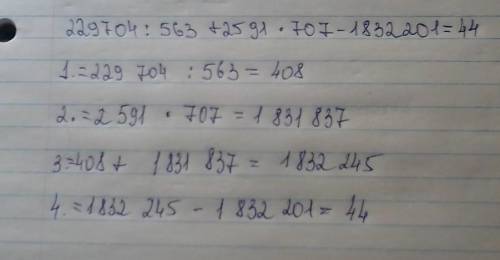 229704 : 563 + 2591 · 707 - 1832201 = 44
1. = 229 704 : 563 = 408
2. = 2 591 · 707 = 1 831 837
3 = 408 + 1831 837 = 1832 245
4. = 1832 245 - 1 832 201 = 44